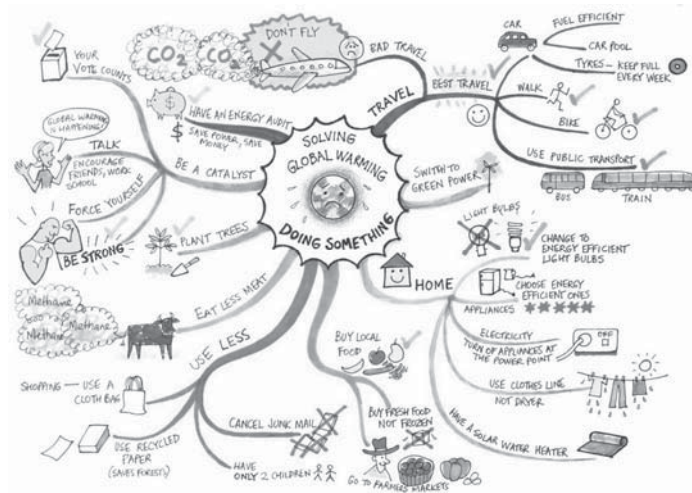 SOLVING
GLOBAL WARMING
DOING SOMETHING
TRAVEL
BAD TRAVEL
DON'T FLY
CO2
CO2
BEST TRAVEL
CAR
FUEL EFFICIENT
CAR POOL
TYRES - KEEP FULL
EVERY WEEK
WALK
BIKE
USE PUBLIC TRANSPORT
BUS
TRAIN
SWITCH TO
GREEN POWER
HOME
LIGHT BULBS
CHANGE TO
ENERGY EFFICIENT
LIGHT BULBS
CHOOSE ENERGY
EFFICIENT ONES
APPLIANCES
ELECTRICITY
TURN OF APPLIANCES AT
THE POWER POINT
OFF
USE CLOTHES LINE
NOT DRYER
HAVE A SOLAR WATER HEATER
BUY LOCAL
FOOD
BUY FRESH FOOD
NOT FROZEN
GO TO FARMERS MARKETS
USE LESS
CANCEL JUNK MAIL
HAVE
ONLY 2 CHILDREN
SHOPPING — USE A
CLOTH BAG
USE RECYCLED
PAPER
(SAVES FORESTS)
EAT LESS MEAT
Methane
Methane
Methane
PLANT TREES
BE A CATALYST
YOUR
VOTE COUNTS
TALK
ENCOURAGE
FRIENDS, WORK
SCHOOL
GLOBAL WARMING
IS HAPPENING!
FORCE YOURSELF
BE STRONG
HAVE AN ENERGY AUDIT
$ SAVE POWER, SAVE
MONEY
$